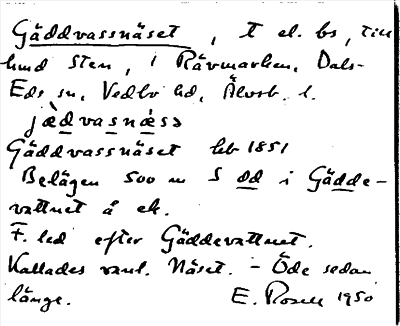 Gäddvassnäset, t el. bs, till
hmd Sten, i Rävmarken, Dals-
Eds sn, Vedbo hd, Älvsb. l.
jæ̀dvasnǽsə
Gäddvassnäset hb 1851
Belägen 500 m S dd i Gädde-
vattnet å ek.
F. led efter Gäddevattnet.
Kallades vanl. Näset. - Öde sedan
länge. E. Rosell 1950